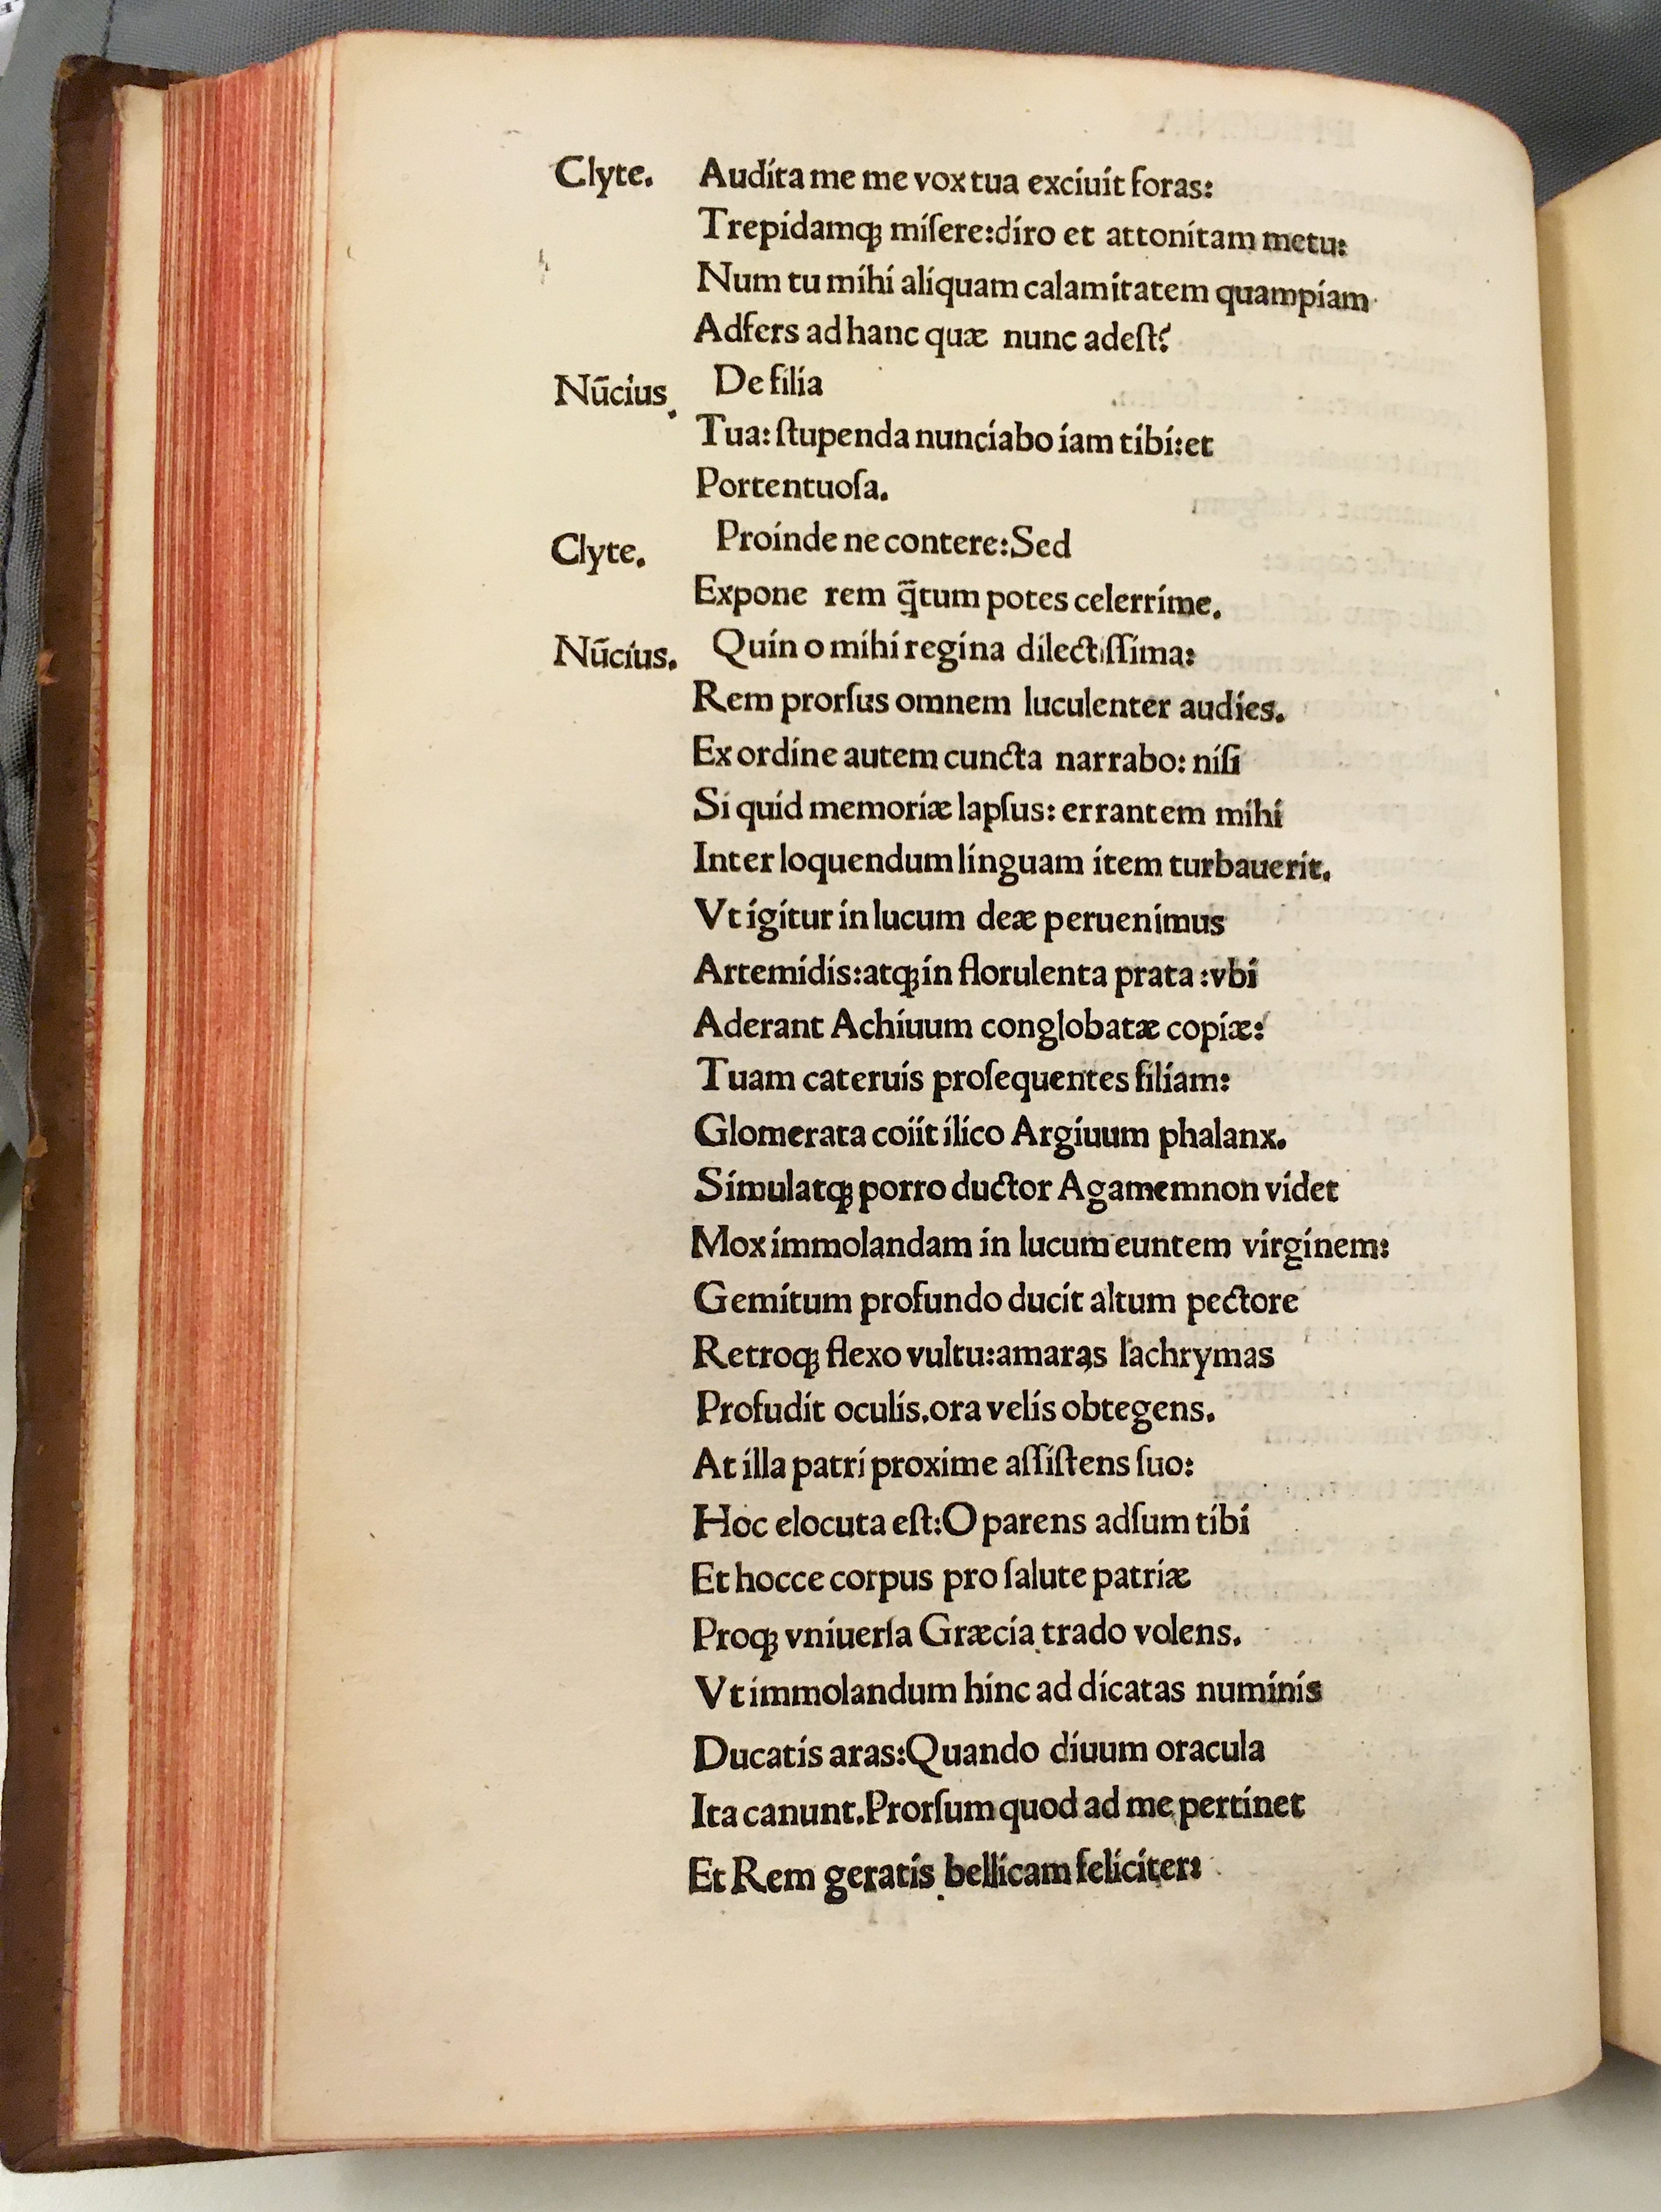 Clyte. Audita me me vox tua exciuit foras:
Trepidamqꝫ miſere:diro et attonitam metu:
Num tu mihi aliquam calamitatem quampiam
Adfers ad hanc quæ nunc adeſt?
Nūcius. De filia
Tua: ſtupenda nunciabo iam tibi:et
Portentuoſa.
Clyte. Proinde ne contere:Sed
Expone rem q̄tum potes celerrime.
Nūcius. Quin o mihi regina dilectiſſima:
Rem prorſus omnem luculenter audies.
Ex ordine autem cuncta narrabo: niſi
Si quid memoriæ lapſus: errantem mihi
Inter loquendum linguam item turbauerit.
Vt igitur in lucum deæ peruenimus
Artemidis:atqꝫ in florulenta prata :vbi
Aderant Achiuum conglobatæ copiæ:
Tuam cateruis proſequentes filiam:
Glomerata coiit ilico Argiuum phalanx.
Simulatqꝫ porro ductor Agamemnon videt
Mox immolandam in lucum euntem virginem:
Gemitum profundo ducit altum pectore
Retroqꝫ flexo vultu:amaras lachrymas
Profudit oculis.ora velis obtegens.
At illa patri proxime aſſiſtens ſuo:
Hoc elocuta eſt:O parens adſum tibi
Et hocce corpus pro ſalute patriæ
Proqꝫ vniuerſa Græcia trado volens.
Vt immolandum hinc ad dicatas numinis
Ducatis aras:Quando diuum oracula
Ita canunt.Prorſum quod ad me pertinet
Et Rem geratis bellicam feliciter: